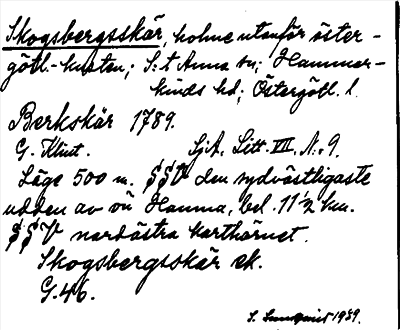 Skogsbergsskär, holme utanför öster-
götl.-kusten; S:t Anna sn; Hammar-
kinds hd; Östergötl. l.
Berkskär 1789.
G. Klint. Sj.A. Litt. VII, N:9.
Läge 500 m. SSV den sydvästligaste
udden av ön Hamna, bel. 11 1/2 km.
SSV nordöstra karthörnet.
Skogsbergsskär ek.
G.46.
S. 1989.